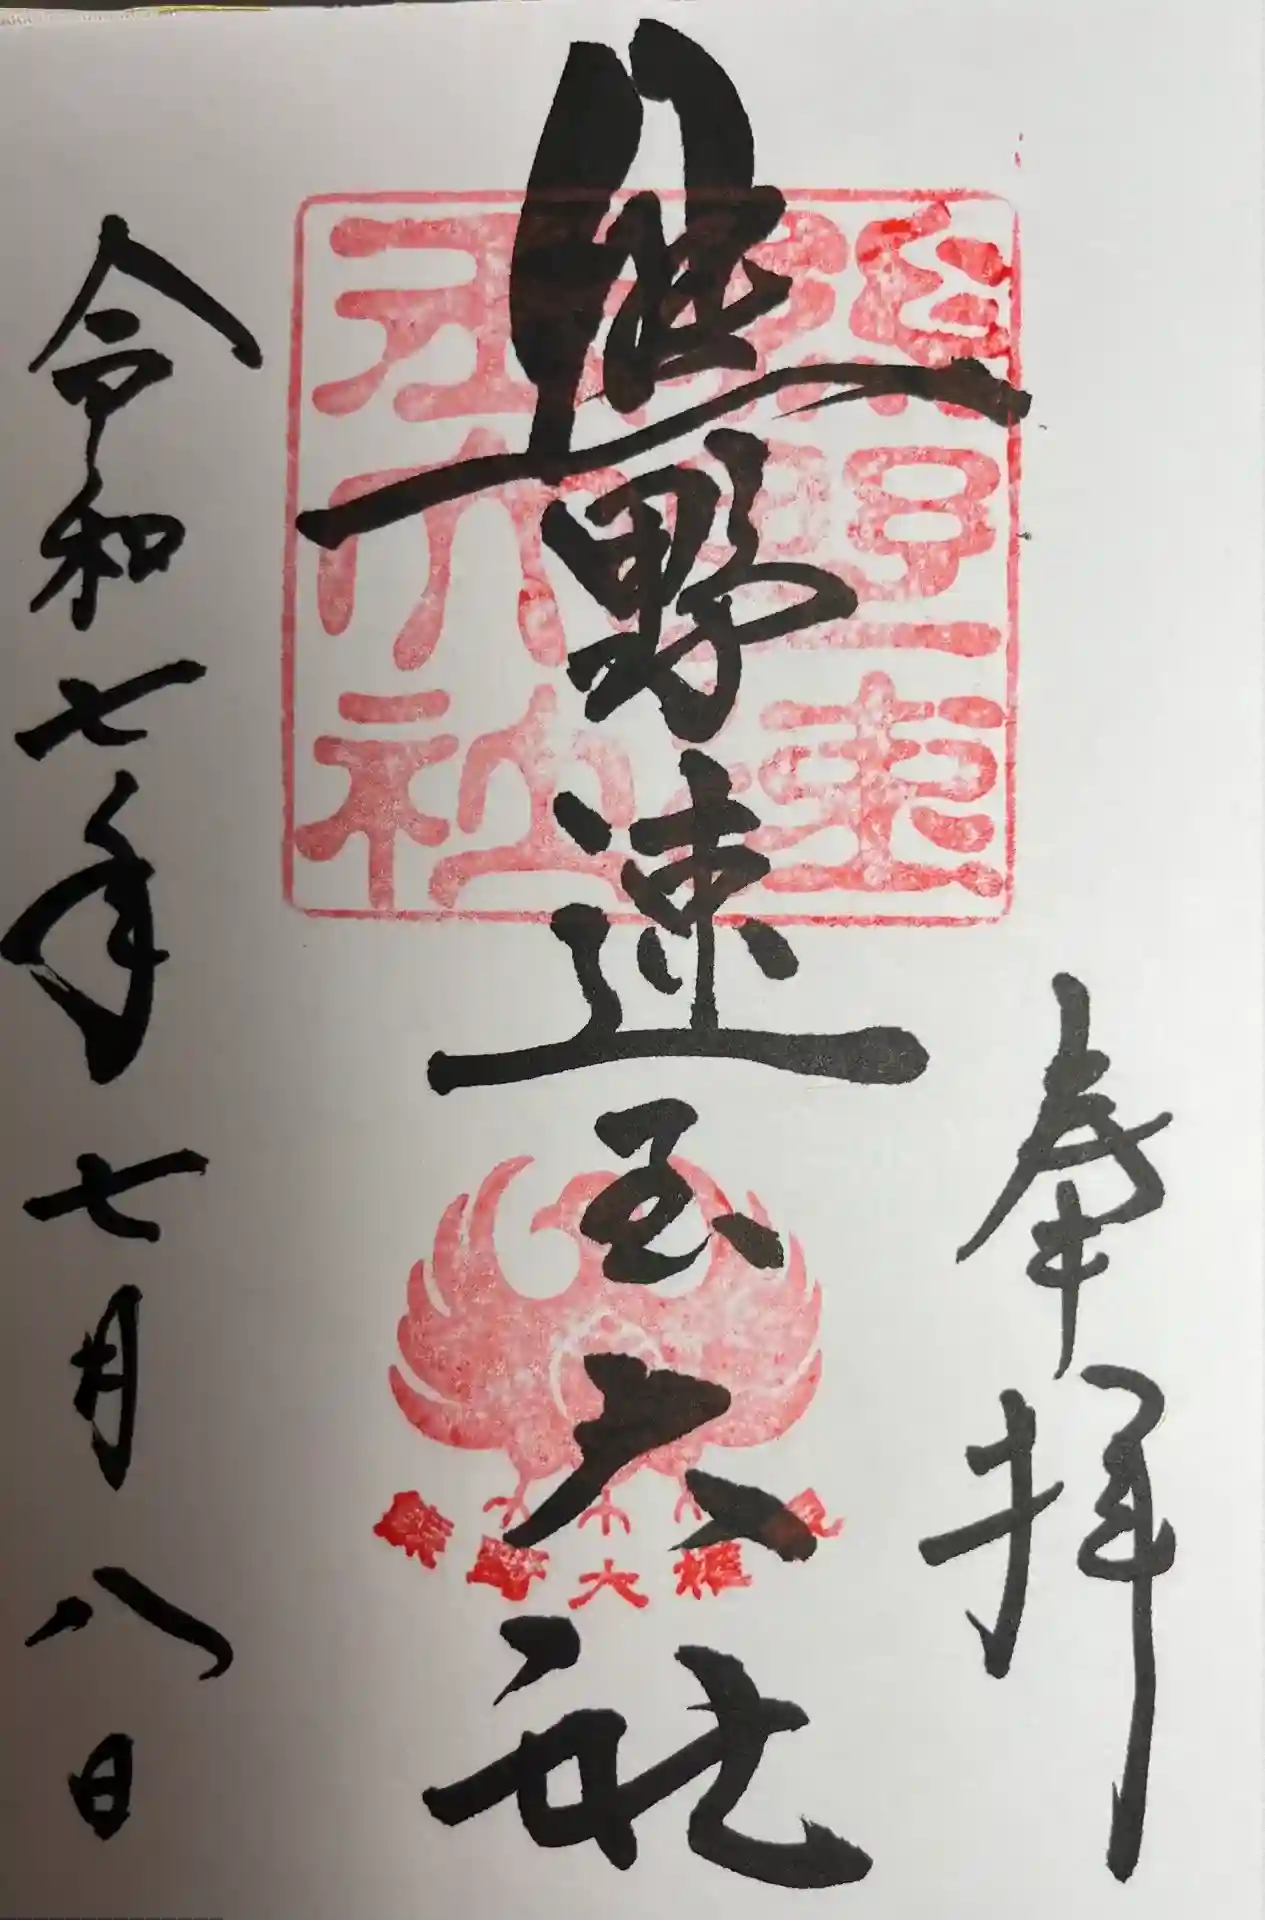 奉拝
熊野速玉大社
熊野速玉大社
熊野大権現
令和七年七月八日